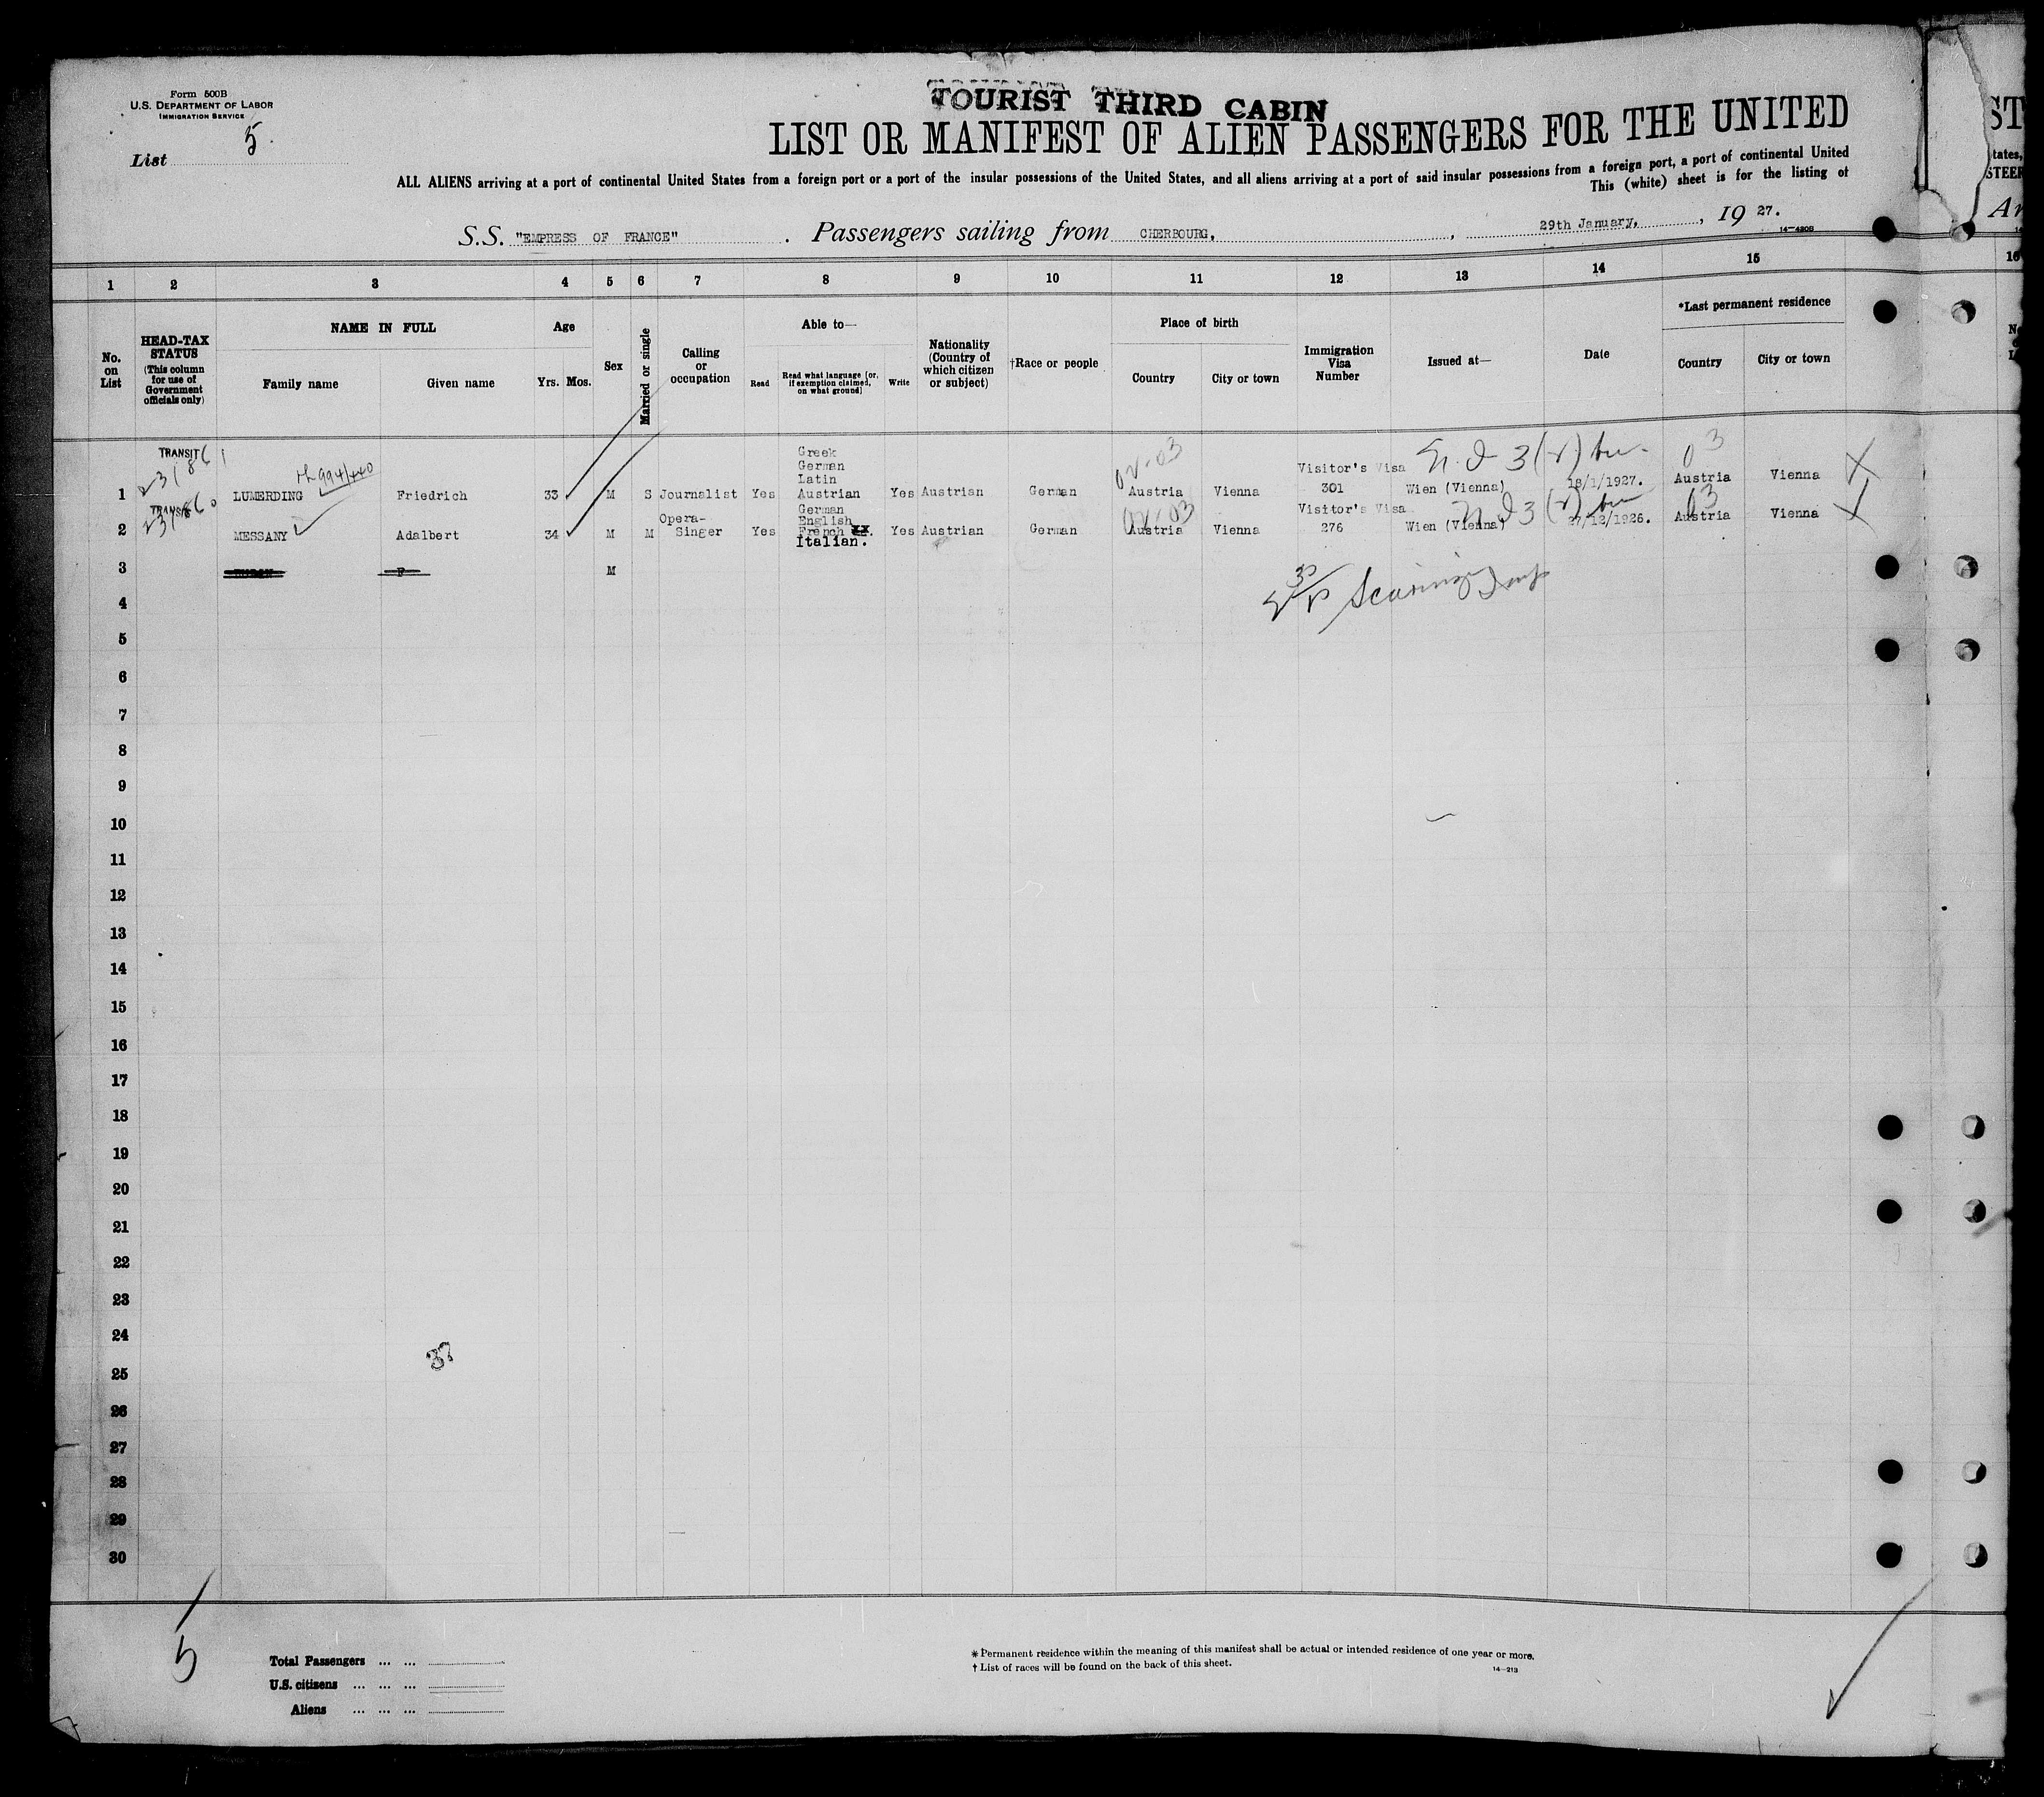 Form 500B
U.S. DEPARTMENT OF LABOR
IMMIGRATION SERVICE
List 5.
TOURIST THIRD CABIN
LIST OR MANIFEST OF ALIEN PASSENGERS FOR THE UNITED
ALL ALIENS arriving at a port of continental United States from a foreign port or a port of the insular possessions of the United States, and all aliens arriving at a port of said insular possessions from a foreign port, a port of continental United
This (white) sheet is for the listing of
S.S. "EMPRESS OF FRANCE" . Passengers sailing from CHERBOURG, , 29th January, , 19 27.
14-4208
1 2 3 4 5 6 7 8 9 10 11 12 13 14 15 16
No. on List
HEAD-TAX STATUS
(This column for use of Government officials only)
NAME IN FULL
Family name Given name
Age
Yrs. Mos.
Sex
Married or single
Calling or occupation
Able to—
Read
Read what language (or, if exemption claimed, on what ground)
Write
Nationality (Country of which citizen or subject)
†Race or people
Place of birth
Country City or town
Immigration Visa Number
Issued at—
Date
*Last permanent residence
Country City or town
TRANSIT
231861
994/440
1 LUMERDING Friedrich 33 M S Journalist Yes Greek German Latin Austrian Yes Austrian German Austria Vienna Visitor's Visa 301 Wien (Vienna) 18/1/1927. Austria Vienna
02-03
03
TRANSIT
231860
2 MESSANY Adalbert 34 M M Opera-Singer Yes German English French Italian. Yes Austrian German Austria Vienna Visitor's Visa 276 Wien (Vienna) 27/12/1926. Austria Vienna
02-03
03
3 F M
4
5
6
7
8
9
10
11
12
13
14
15
16
17
18
19
20
21
22
23
24
37
25
26
27
28
29
30
5
Total Passengers ... ...
U.S. citizens ... ... ...
Aliens ... ... ...
* Permanent residence within the meaning of this manifest shall be actual or intended residence of one year or more.
† List of races will be found on the back of this sheet.
14-213